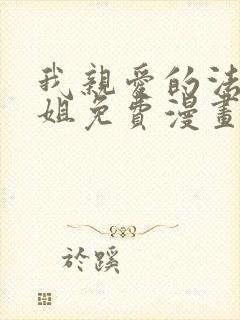 我親愛的法
姐免費漫畫
於蹊